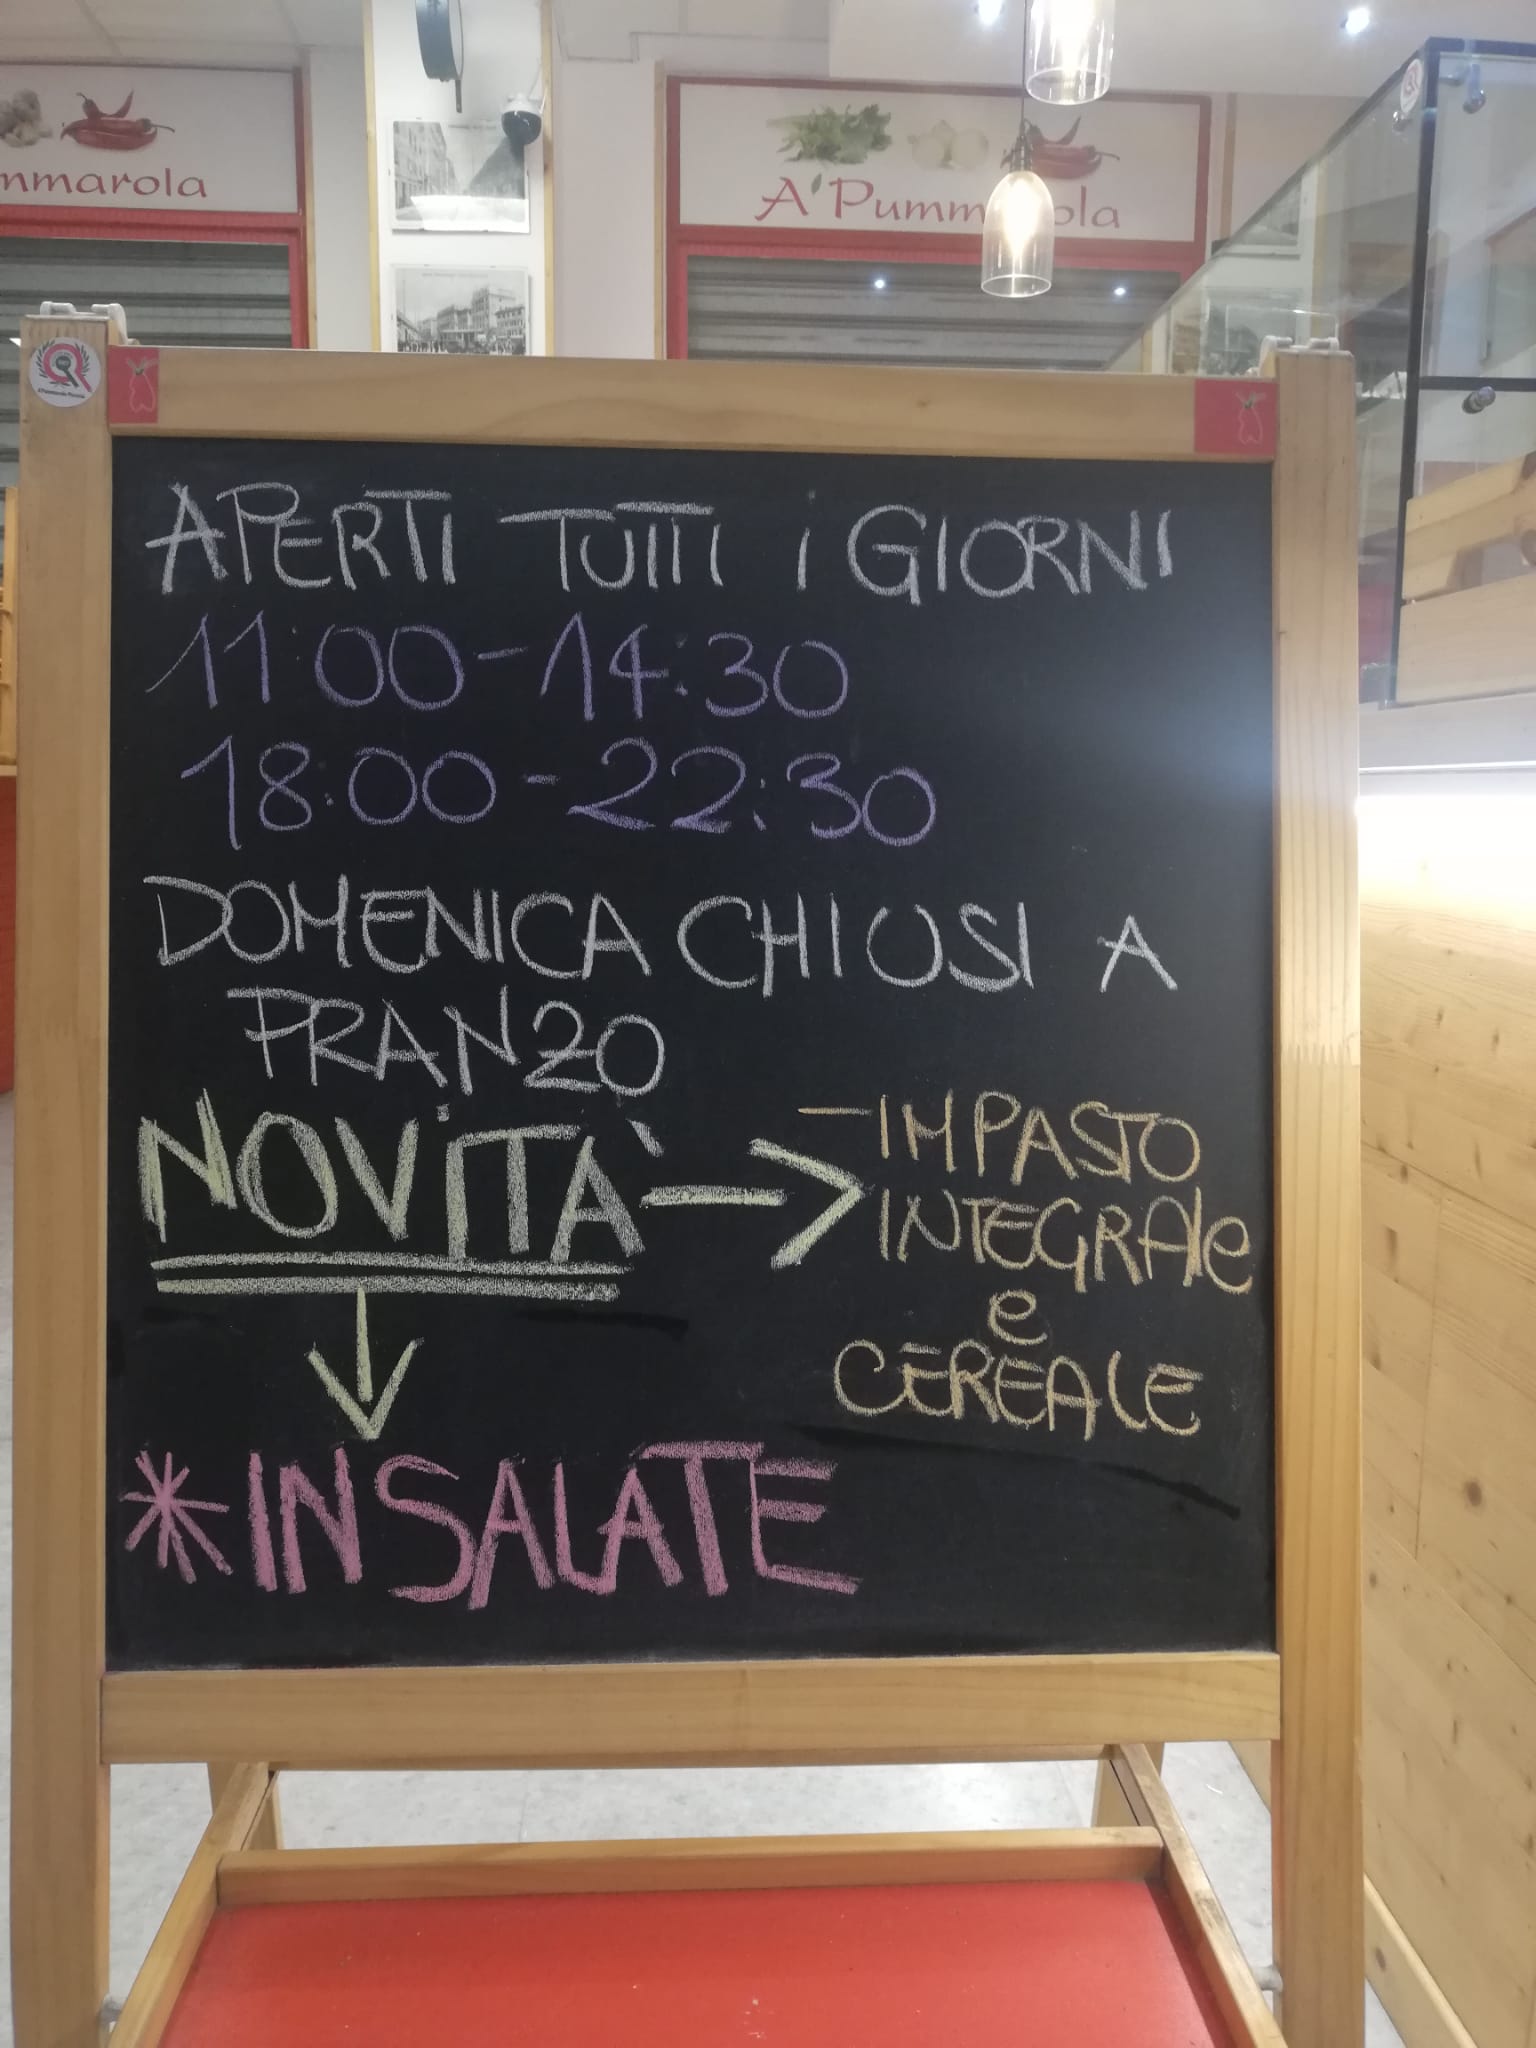 mmarola
A'Pummarola
APERTI TUTTI i GIORNI
11:00-14:30
18:00-22:30
DOMENICA CHIUSI A
PRANZO
NOVITÀ
-IMPASTO
INTEGRAle
e
CEREALE
*INSALATE